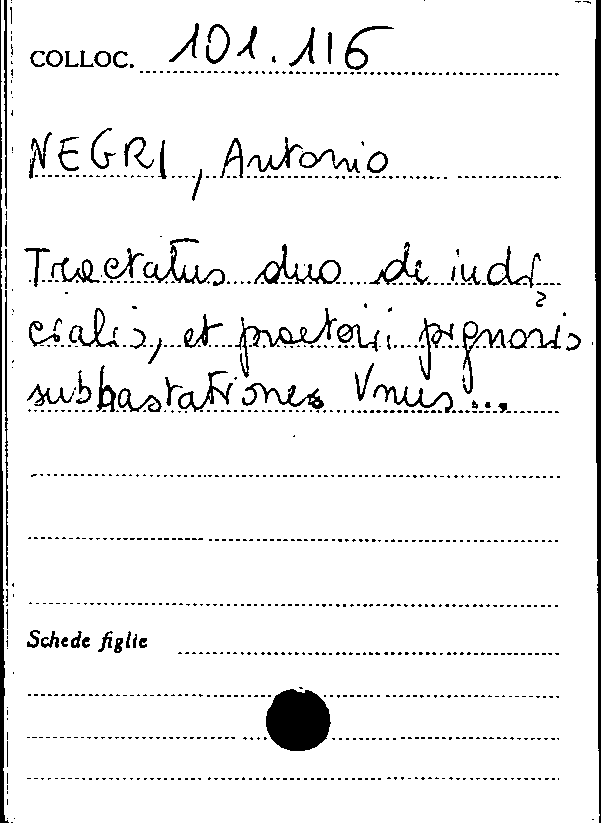 COLLOC. 101.116
NEGRI, Antonio
Tractatus duo de iudi
cialis, et praetorii pignoris
subhastationes Vnus...
Schede figlie